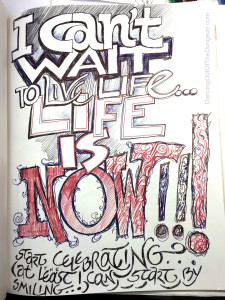 I can't
WAIT
TO live LiFe...
LIFE
IS
NOW!!!
START CELEBRATING...
(at least I can START BY
SMILING...